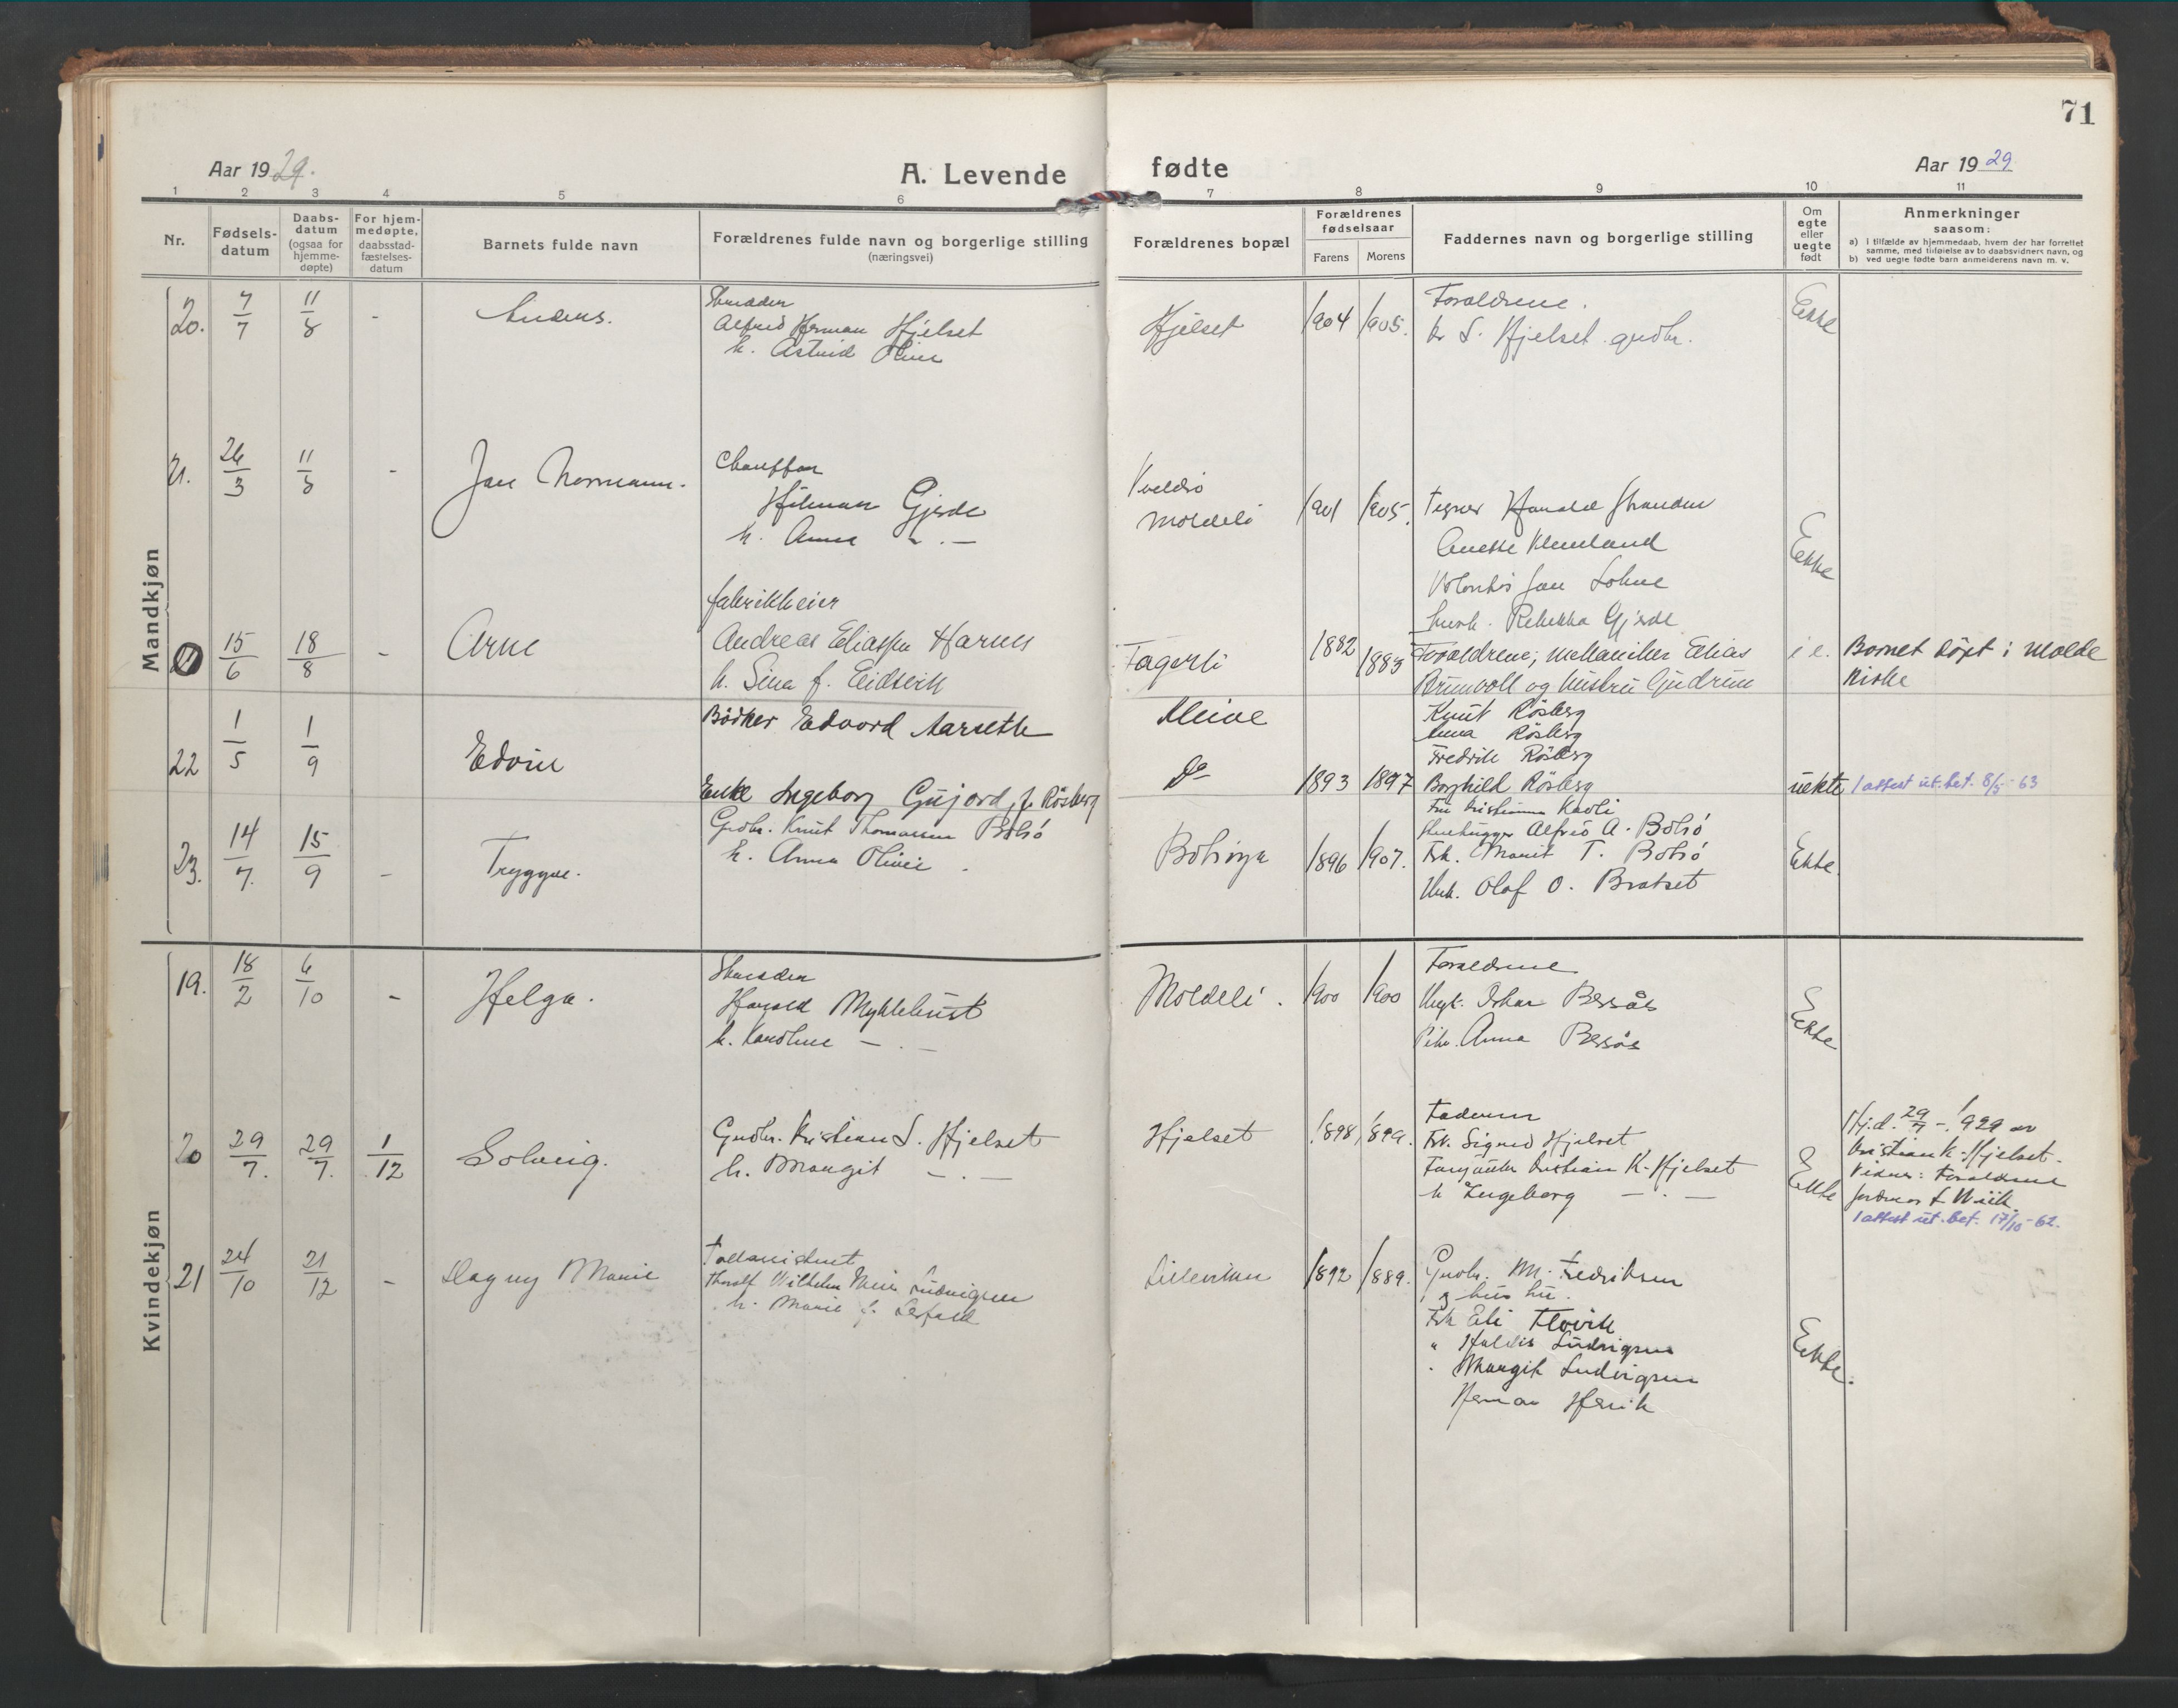 71
Aar 1929.
A. Levende fødte
Aar 1929
1 2 3 4 5 6 7 8 9 10 11
Nr.
Fødsels-
datum
Daabs-
datum
(ogsaa for
hjemme-
døpte)
For hjem-
medøpte,
daabsstad-
fæstelses-
datum
Barnets fulde navn
Forældrenes fulde navn og borgerlige stilling
(næringsvei)
Forældrenes bopæl
Forældrenes
fødselsaar
Farens Morens
Faddernes navn og borgerlige stilling
Om
egte
eller
uegte
født
Anmerkninger
saasom:
a) i tilfælde av hjemmedaab, hvem der har forrettet
samme, med tilføielse av to daabsvidners navn, og
b) ved uegte fødte barn anmelderens navn m. v.
Mandkjøn
20. 7/7 11/8 - Anders.
Skrædder
Alfred Herman Hjelset
h. Astrid Oline
Hjelset 1904 1905.
Foraldrene.
Kr S. Hjelset gudbr.
Ekte
21. 26/3 11/8 - Jan Normann.
Chauffør
Hilmar Gjerde
h. Anna - . -
Moldeli 1901 1905.
Tegner Harald Strander
Anette
Jan Lohne
Rebekka Gjerde
Ekte
15/6 18/8 - Arne
fabrikkeier
Andreas Eliassen Harnes
h. Sina f. Eidsvik
Fagerli 1882 1883
Foraldrene, mekaniker Elias
Brunvoll og hustru Gudrun
i e. Barnet döpt i Molde
kirke
22 1/5 1/9 Edvin
Bödker Edvard Aarseth
Enke Ingeborg Gujord f. Rösberg
Kleive
Do 1893 1897
Knut Rösberg
Anna Rösberg
Fredrik Rösberg
Borghild Rösberg
uekte 1 attest ut. bet. 8/5-63
23. 14/7. 15/9 - Tryggve.
Gudbr. Knut Thomassen Bolsö
h. Anna Olivie
Bolsöya 1896 1907.
Fru Kristianna Kavli
Alfred A. Bolsö
Frk. Marit T. Bolsö
Ungk. Olaf O. Bratset
Ekte
Kvindekjøn
19. 18/2 6/10 - Helga.
Skrædder
Harald Myklebust
h. Karoline - . -
Moldeli. 1900 1900
Foraldrene
Ungk. Oskar Bersås
Pike Anna Bersås
Ekte
20 29/7. 29/7. 1/12 Solveig.
Gudbr. Kristian S. Hjelset
h. Margit - . -
Hjelset 1898, 1899.
Faderen
Frk. Sigrid Hjelset
Kristian K. Hjelset
h Ingeborg - . -
Ekte
Hj.d. 29/7 - 1929 av
Kristian K. Hjelset.
Vidner: Foraldrene
jordmor f. Wiik.
1 attest ut. bet. 17/10-62.
21 24/10 21/12 - Dagny Marie
Thorolf Wilhelm Ludvigsen
h. Marie f.
1892 1889.
Gudbr. M. Fredriksen
og hustru.
Frk Eli Flovik
" Haldis Ludvigsen
" Margit Ludvigsen
Herman Henrik
Ekte.